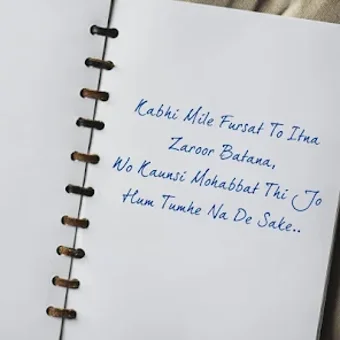 Kabhi Mile Fursat To Itna
Zaroor Batana,
Wo Kaunsi Mohabbat Thi Jo
Hum Tumhe Na De Sake..